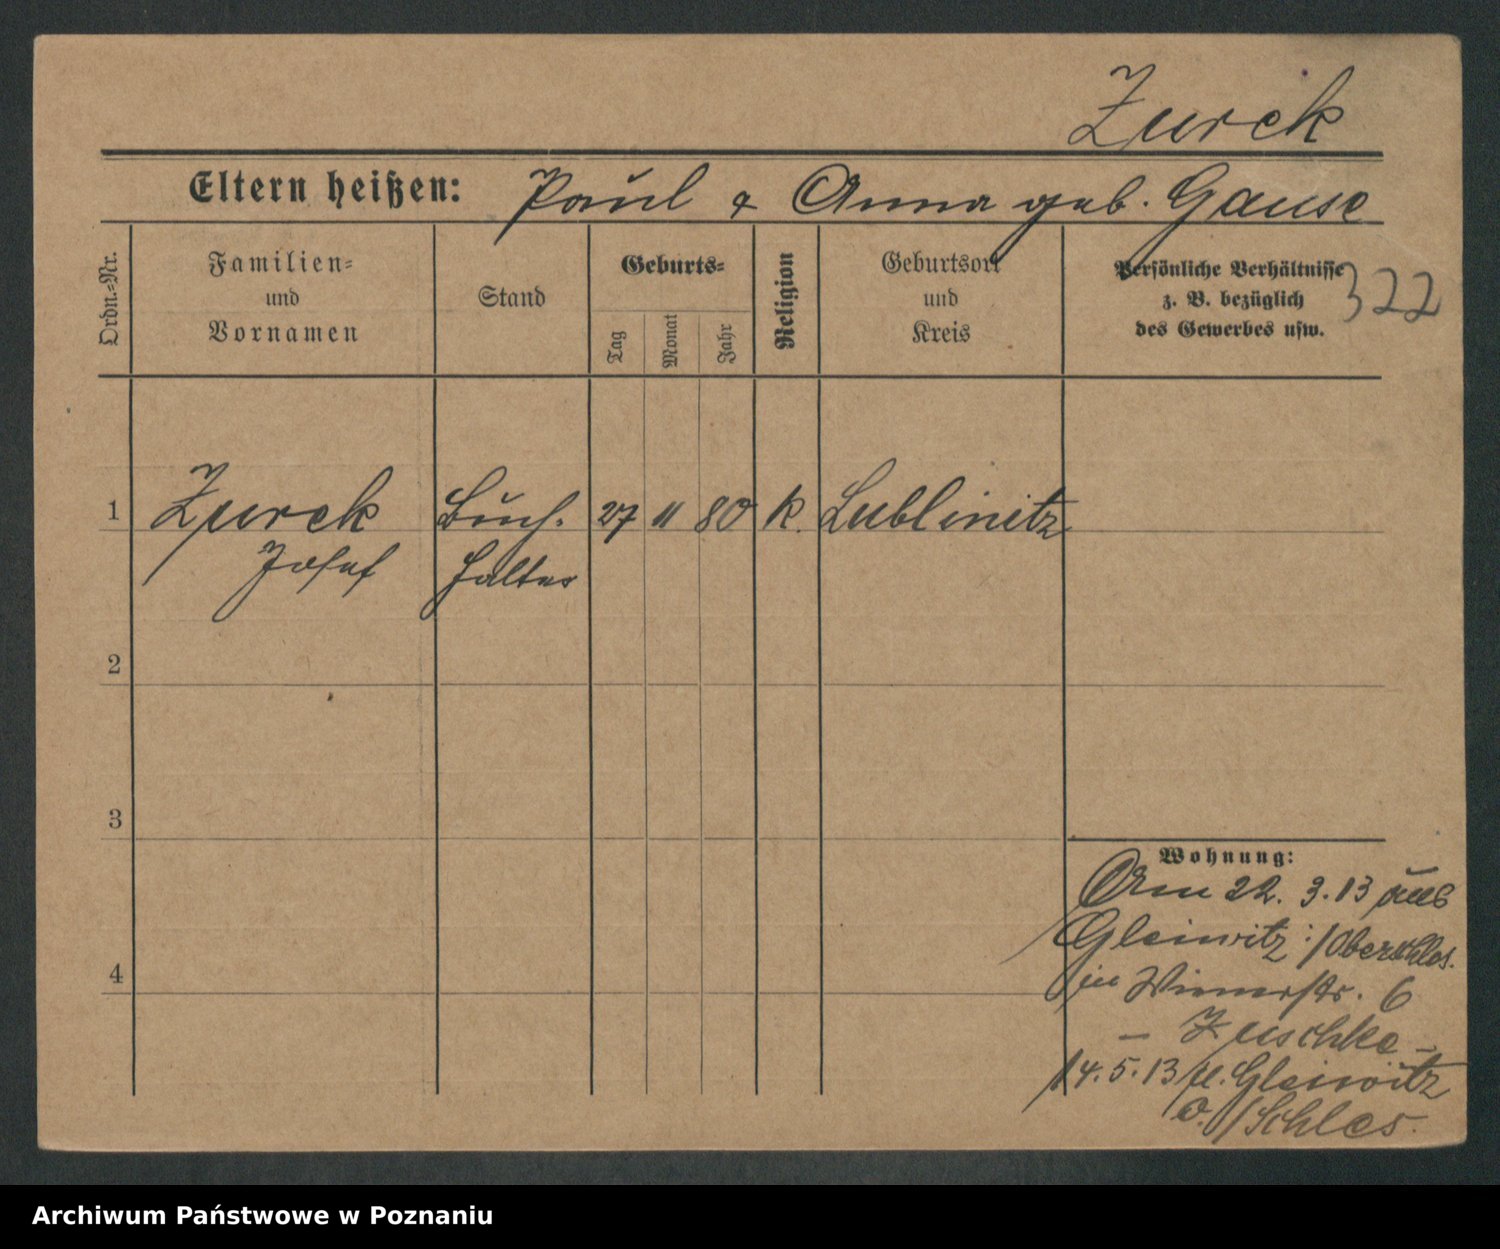 Zurek
Eltern heißen: Paul & Anna geb. Gause
Ordn.-Nr.
Familien-
und
Vornamen
Stand
Geburts-
Tag
Monat
Jahr
Religion
Geburtsort
und
Kreis
Persönliche Verhältnisse
z. B. bezüglich
des Gewerbes usw.
322
1 Zurek Buch- 27 11 80 k. Lublinitz
Josef halter
2
3
4
Wohnung:
Am 22. 3. 13 aus
Gleiwitz :/Oberschles.
in Wienerstr. 6
– Zuschke –
14. 5. 13 n. Gleiwitz
O./Schles.
Archiwum Państwowe w Poznaniu